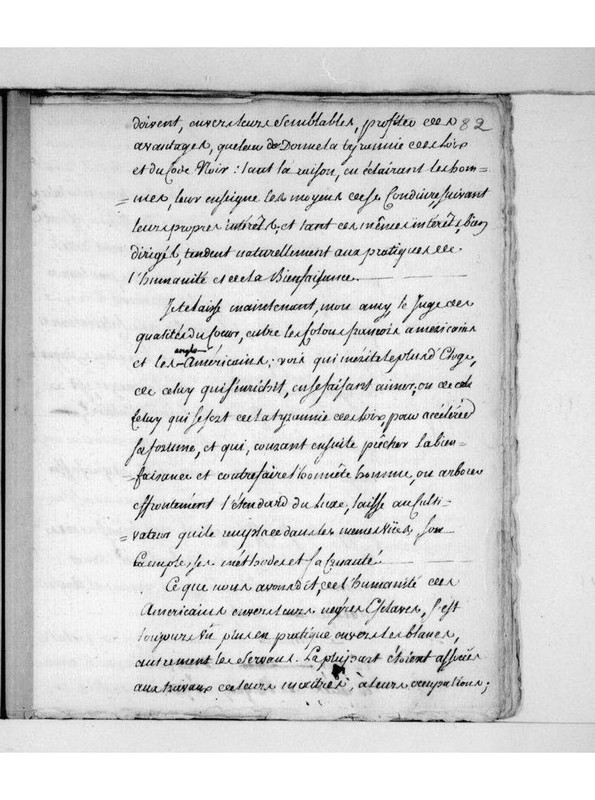 doivent, envers leurs semblables, profiter des 82
avantages, que leur donne la tyrannie des loix
et du Code Noir : tant la raison, en éclairant les hom-
=mes, leur enseigne les moyens de se Conduire, suivant
leurs propres intérêts, et tant ces mêmes intérêts, bien
dirigés, tendent naturellement aux pratiques de
l'humanité et de la Bienfaisance.
Je te laisse maintenant, mon amy, le Juge des
qualités du Cœur, entre les Colons françois américains
et les anglo-Américains; vois qui mérite le plus d'Eloge,
de celuy qui s'enrichit, en se faisant aimer, ou de
Celuy qui se sert de la tyrannie des loix, pour accélérer
sa fortune, et qui, courant ensuite prêcher la bien-
=faisance et contrefaire l'honnête homme, ou arborer
effrontément l'étendard du Luxe, laisse au Culti-
=vateur qui le remplace dans les mêmes vües, son
Exemple, ses méthodes et sa Cruauté.
Ce que nous avons dit, de l'humanité des
Américains envers leurs nègres Esclaves, s'est
toujours vû plus en pratique envers les blancs,
autrement les Servans. La plupart étoient associés
aux travaux de leurs maîtres, à leurs occupations;